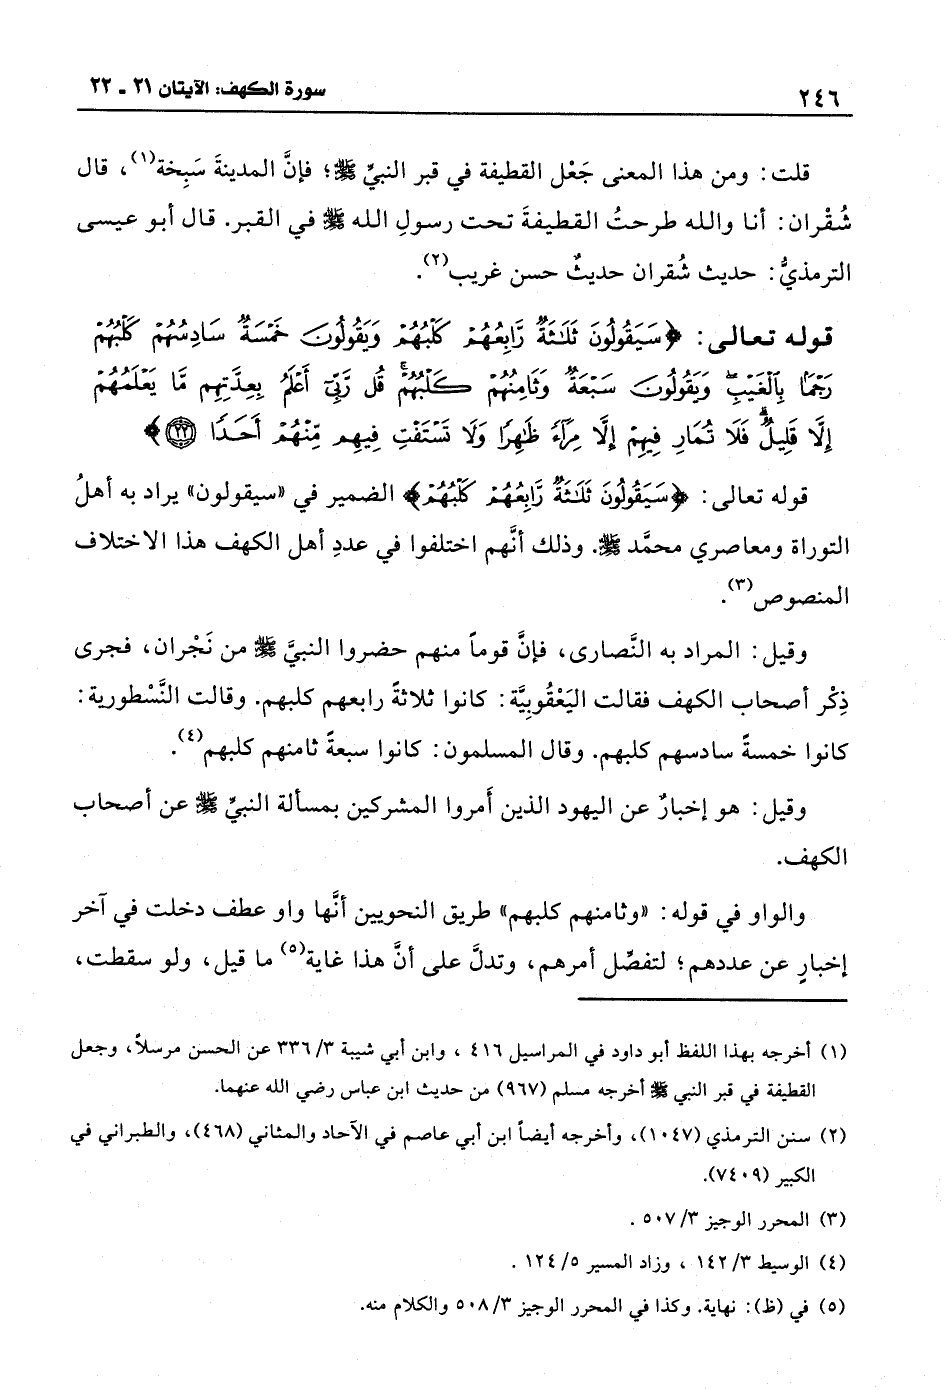 ٢٤٦ سورة الكهف: الآيتان ٢١ - ٢٢
قلت: ومن هذا المعنى جَعْل القطيفة في قبر النبيِّ ﷺ؛ فإنَّ المدينةَ سَبِخة(١)، قال
شُقْران: أنا والله طرحتُ القطيفةَ تحت رسولِ الله ﷺ في القبر. قال أبو عيسى
الترمذيُّ: حديث شُقران حديثٌ حسن غريب(٢).
قوله تعالى: ﴿سَيَقُولُونَ ثَلَٰثَةٌ رَّابِعُهُمْ كَلْبُهُمْ وَيَقُولُونَ خَمْسَةٌ سَادِسُهُمْ كَلْبُهُمْ
رَجْمًا بِٱلْغَيْبِ وَيَقُولُونَ سَبْعَةٌ وَثَامِنُهُمْ كَلْبُهُمْ قُل رَّبِّىٓ أَعْلَمُ بِعِدَّتِهِم مَّا يَعْلَمُهُمْ
إِلَّا قَلِيلٌ فَلَا تُمَارِ فِيهِمْ إِلَّا مِرَآءً ظَٰهِرًا وَلَا تَسْتَفْتِ فِيهِم مِّنْهُمْ أَحَدًا ٢٢﴾
قوله تعالى: ﴿سَيَقُولُونَ ثَلَٰثَةٌ رَّابِعُهُمْ كَلْبُهُمْ﴾ الضمير في «سيقولون» يراد به أهلُ
التوراة ومعاصري محمَّد ﷺ. وذلك أنَّهم اختلفوا في عددِ أهل الكهف هذا الاختلاف
المنصوص(٣).
وقيل: المراد به النَّصارى، فإنَّ قوماً منهم حضروا النبيَّ ﷺ من نَجْران، فجرى
ذِكْر أصحاب الكهف فقالت اليَعْقُوبِيَّة: كانوا ثلاثةً رابعهم كلبهم. وقالت النَّسْطورية:
كانوا خمسةً سادسهم كلبهم. وقال المسلمون: كانوا سبعةً ثامنهم كلبهم(٤).
وقيل: هو إخبارٌ عن اليهود الذين أَمروا المشركين بمسألة النبيِّ ﷺ عن أصحاب
الكهف.
والواو في قوله: «وثامنهم كلبهم» طريق النحويين أنَّها واو عطف دخلت في آخر
إخبارٍ عن عددهم؛ لتفصِّل أمرهم، وتدلَّ على أنَّ هذا غاية(٥) ما قيل، ولو سقطت،
(١) أخرجه بهذا اللفظ أبو داود في المراسيل ٤١٦ ، وابن أبي شيبة ٣/ ٣٣٦ عن الحسن مرسلاً، وجعل
القطيفة في قبر النبي ﷺ أخرجه مسلم (٩٦٧) من حديث ابن عباس رضي الله عنهما.
(٢) سنن الترمذي (١٠٤٧)، وأخرجه أيضاً ابن أبي عاصم في الآحاد والمثاني (٤٦٨)، والطبراني في
الكبير (٧٤٠٩).
(٣) المحرر الوجيز ٣/ ٥٠٧ .
(٤) الوسيط ٣/ ١٤٢ ، وزاد المسير ٥/ ١٢٤ .
(٥) في (ظ): نهاية. وكذا في المحرر الوجيز ٣/ ٥٠٨ والكلام منه.